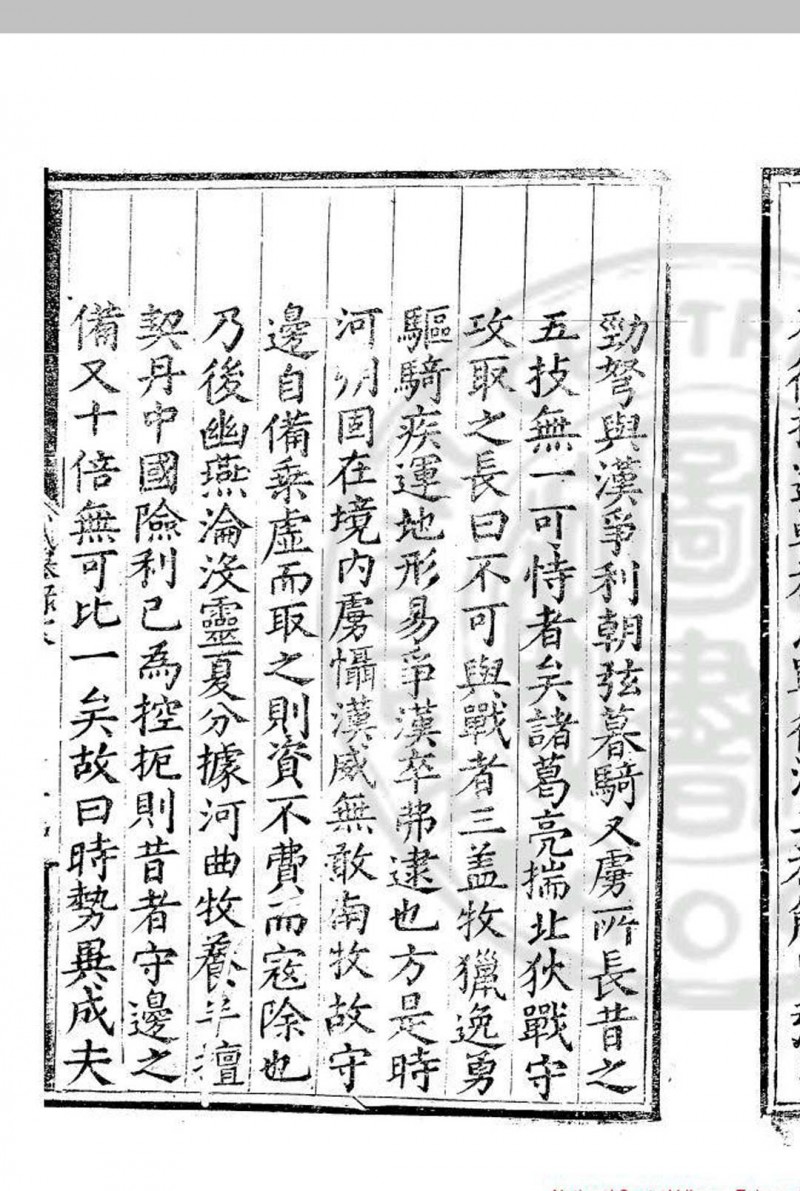 勁弩與漢爭利朝弦暮騎又虜所長昔之
五技無一可恃者矣諸葛亮揣北狄戰守
攻取之長曰不可與戰者三蓋牧獵逸勇
驅騎疾運地形易爭漢卒弗逮也方是時
河朔固在境內虜懾漢威無敢南牧故守
邊自備乗虛而取之則資不費而宼除也
乃後幽燕淪沒靈夏分據河曲牧養半擅
契丹中國險利已為控扼則昔者守邊之
備又十倍無可比一矣故曰時勢異成夫